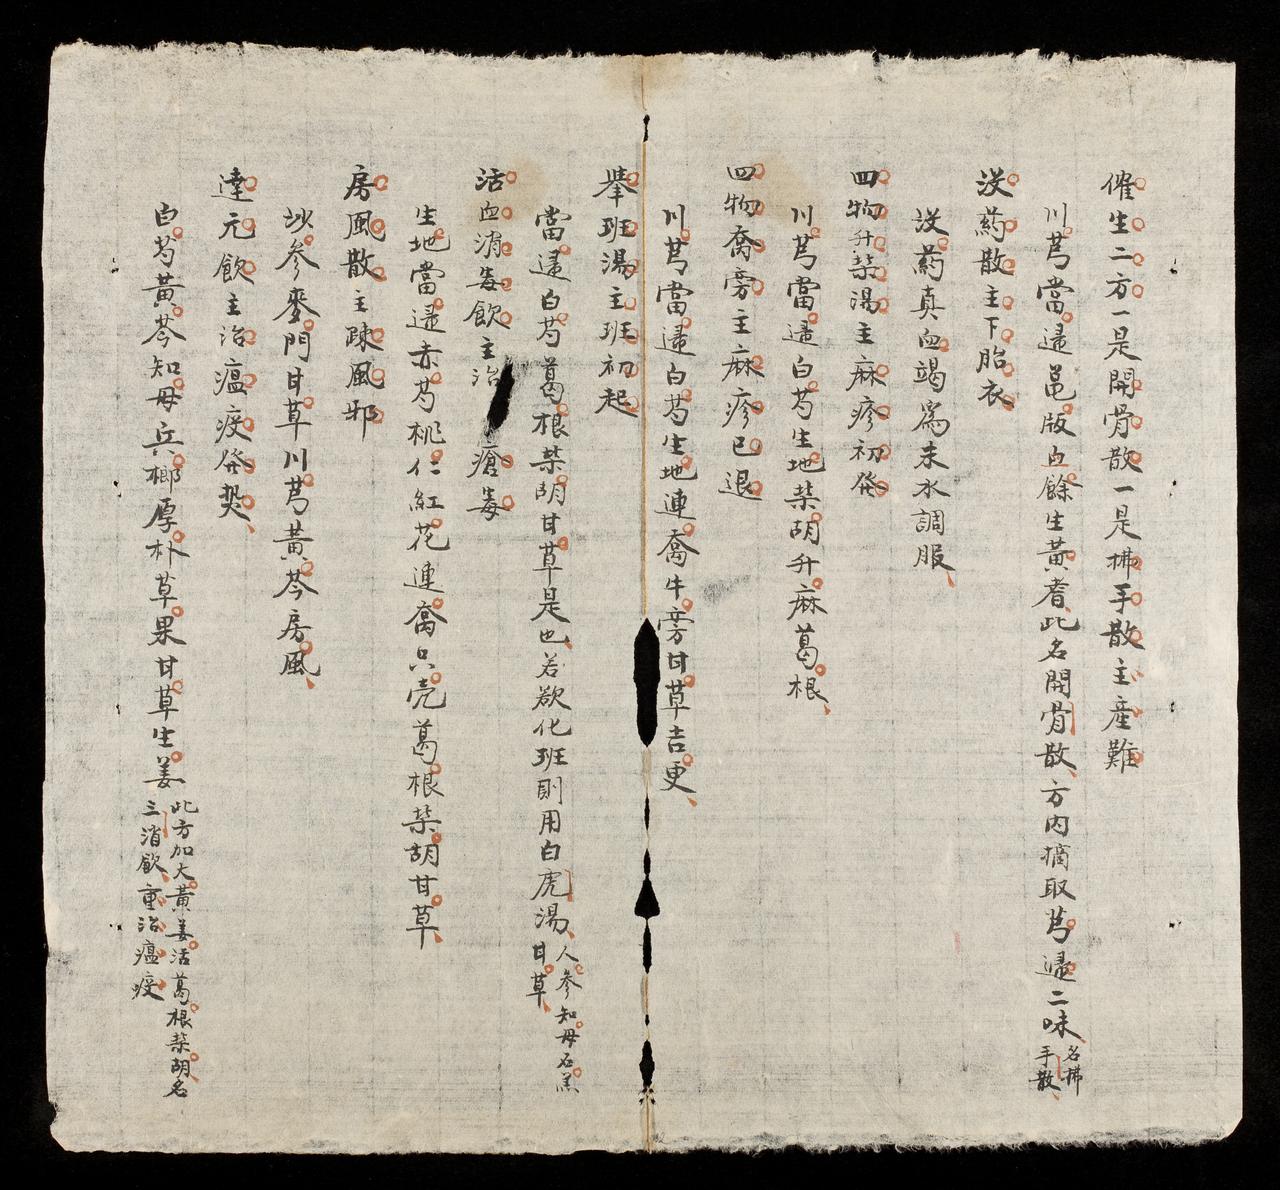 催生二方一是開骨散一是拂手散主産難
川芎當遝邑版血餘生黃耆此名開骨散方內摘取芎遝二味名拂
手散
沒葯散主下胎衣
沒葯真血竭為末水調服
四物升柴湯主麻疹初發
川芎當遝白芍生地柴胡升麻葛根
四物喬旁主麻疹已退
川芎當遝白芍生地連喬牛旁甘草吉更
舉班湯主班初起
當遝白芍葛根柴胡甘草是也若欲化班則用白虎湯人參知母石羔
甘草
活血消毒飲主治瘡毒
生地當遝赤芍桃仁紅花連喬只壳葛根柴胡甘草
房風散主疎風邪
沙參麥門甘草川芎黃芩房風
達元飲主治瘟疫發熱
白芍黃芩知母兵榔厚朴草果甘草生姜此方加大黃姜活葛根柴胡名
三消飲重治瘟疫